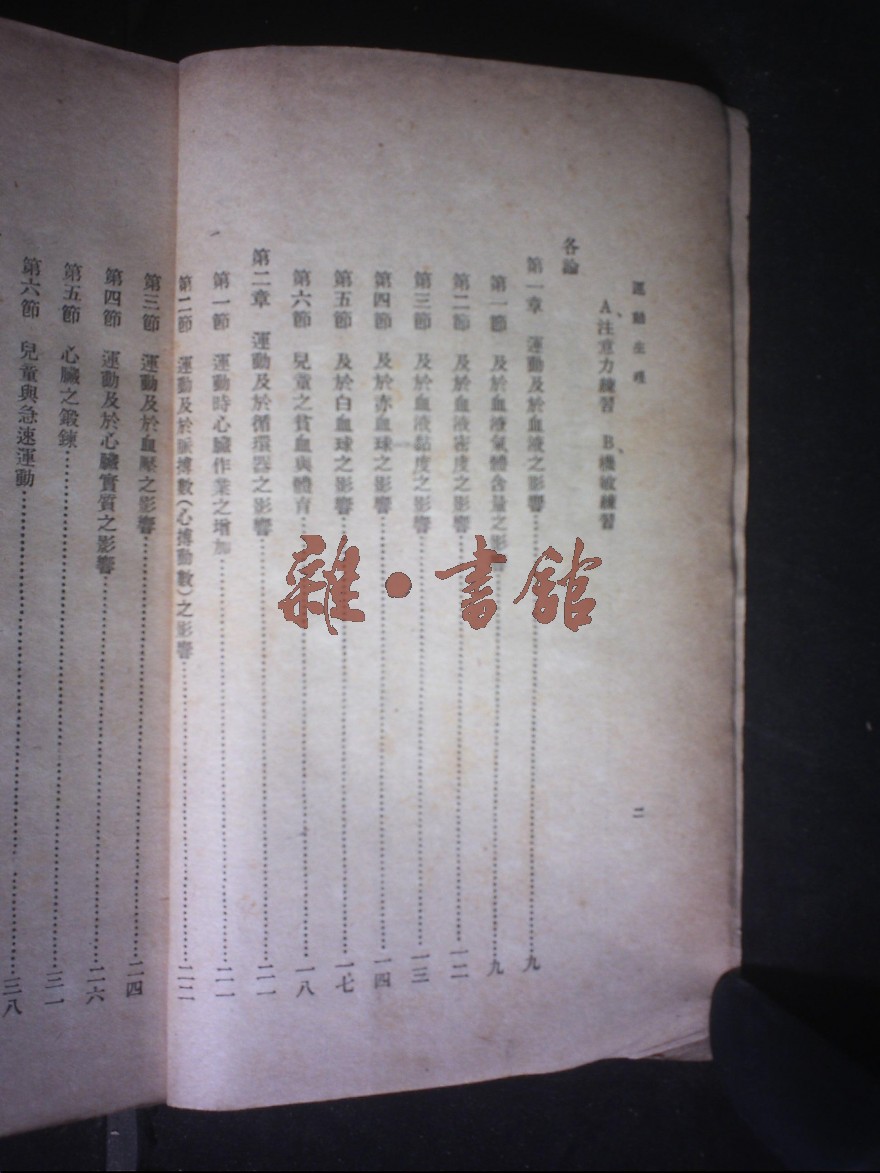 運動生理
二
A、注意力練習 B、機敏練習
各論
第一章 運動及於血液之影響……九
第一節 及於血液氣體含量之影……九
第二節 及於血液密度之影響……一二
第三節 及於血液黏度之影響……一三
第四節 及於赤血球之影響……一四
第五節 及於白血球之影響……一七
第六節 兒童之貧血與體育……一八
第二章 運動及於循環器之影響……二一
第一節 運動時心臟作業之增加……二一
第二節 運動及於脈搏數(心搏動數)之影響……二二
第三節 運動及於血壓之影響……二四
第四節 運動及於心臟實質之影響……二六
第五節 心臟之鍛鍊……三一
第六節 兒童與急速運動……三八
雜·書館